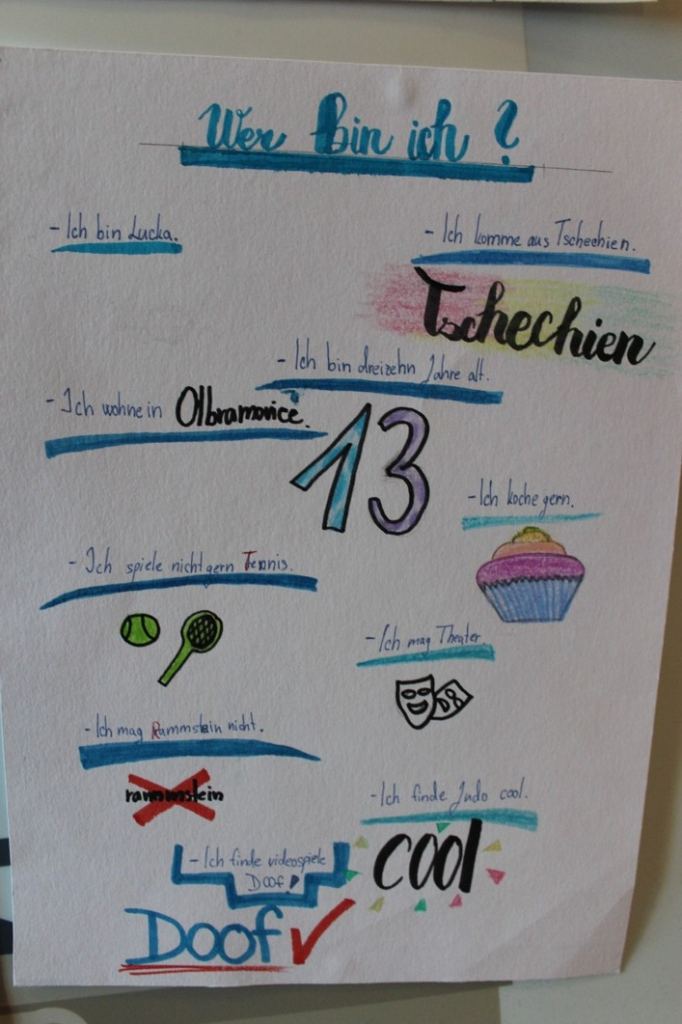 Wer bin ich ?
- Ich bin Lucka.
- Ich komme aus Tschechien.
Tschechien
- Ich bin dreizehn Jahre alt.
- Ich wohne in Olbramovice.
13
- Ich koche gern.
- Ich spiele nicht gern Tennis.
- Ich mag Theater
- Ich mag Rammstein nicht.
rammstein
- Ich finde Judo cool.
cool
- Ich finde videospiele
Doof!
Doof